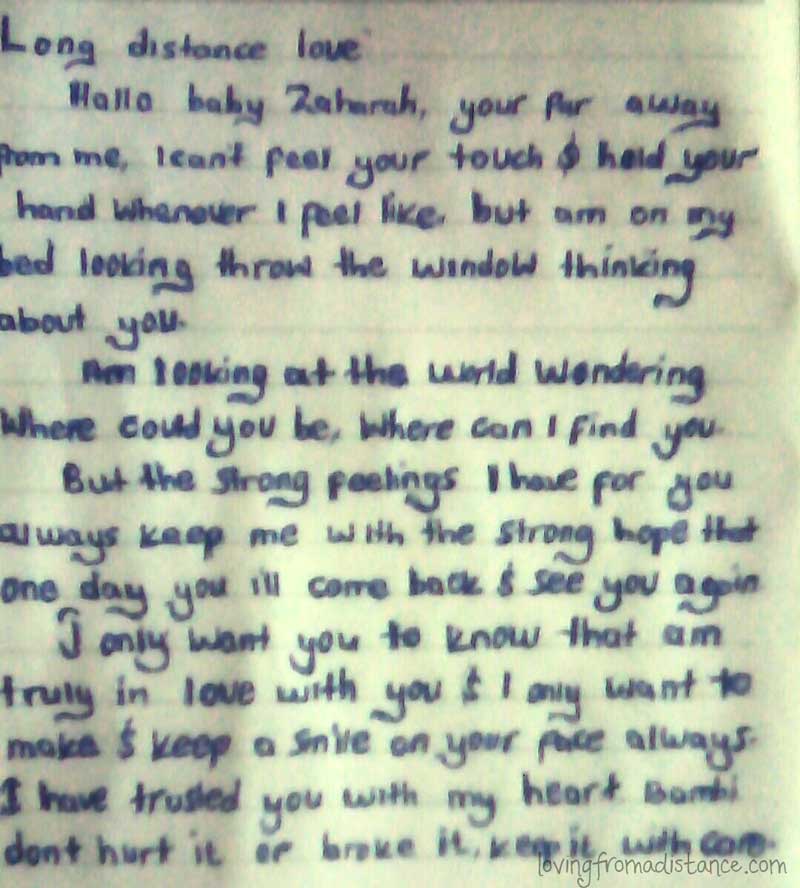 Long distance love
Hallo baby Zaharah, your far away
from me, I can't feel your touch & hold your
hand whenever I feel like, but am on my
bed looking throw the window thinking
about you.
Am looking at the world wondering
Where could you be, Where can I find you.
But the strong feelings I have for you
always keep me with the strong hope that
one day you ill come back & see you again
I only want you to know that am
truly in love with you & I only want to
make & keep a smile on your face always.
I have trusted you with my heart Bambi
dont hurt it or broke it, keep it with care.
lovingfromadistance.com